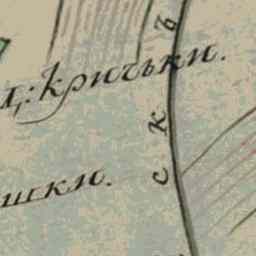 ц: Кричьки.
шки.
с к ъ